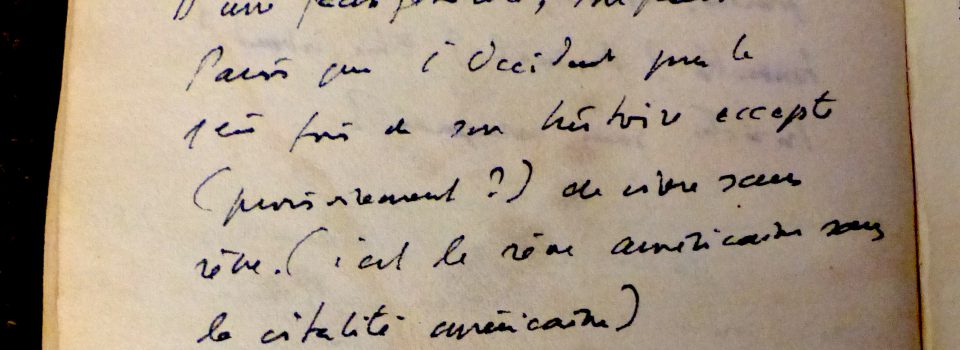 D'une façon générale,
Parce que l'Occident pour la
1ère fois de son histoire accepte
(provisoirement ?) de vivre sans
rêve. (c'est le rêve américain sans
la vitalité américaine)